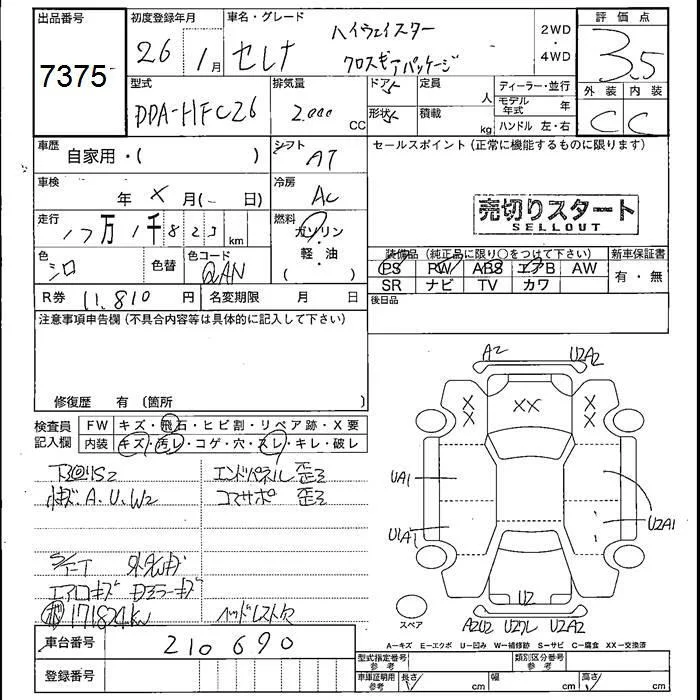 出品番号
7375
初度登録年月
26 1月
車名・グレード
セレナ
ハイウェイスター
クロスギアパッケージ
2WD
・
4WD
評価点
3.5
外装 内装
C C
型式
DDA-HFC26
排気量
2.000 CC
ドア
形状
定員
人
積載
kg
ディーラー・並行
モデル年式 年
ハンドル 左・右
車歴
自家用・( )
シフト
AT
車検
年 × 月( 日)
冷房
AC
走行
17万1千823 km
燃料
ガソリン
軽・油
( )
色
シロ
色替
色コード
QAN
R券 11,810 円
名変期限 月 日
セールスポイント(正常に機能するものに限ります)
売切りスタート
SELLOUT
装備品(純正品に限り○をつけて下さい)
新車保証書
PS PW ABS エアB AW
有・無
SR ナビ TV カワ
後日品
注意事項申告欄(不具合内容等は具体的に記入して下さい)
修復歴 有(箇所
検査員記入欄
FW キズ・飛石・ヒビ割・リペア跡・X要
内装 キズ・汚レ・コゲ・穴・スレ・キレ・破レ
エンドパネル歪ミ
A.U.W2
コアサポ歪ミ
エアロキズ ドアミラーキズ
171824km
ヘッドレスト欠
車台番号
210690
登録番号
A2 U2A2
X X
XX
X X
UA1
U1A1
U2A1
U2
スペア
A2U2 U2ワレ U2A2
A−キズ E−エクボ U−凹み W−補修跡 S−サビ C−腐食 XX−交換済
型式指定番号
参考
類別区分番号
参考
車庫証明用
参考
長さ cm
幅 cm
高さ cm